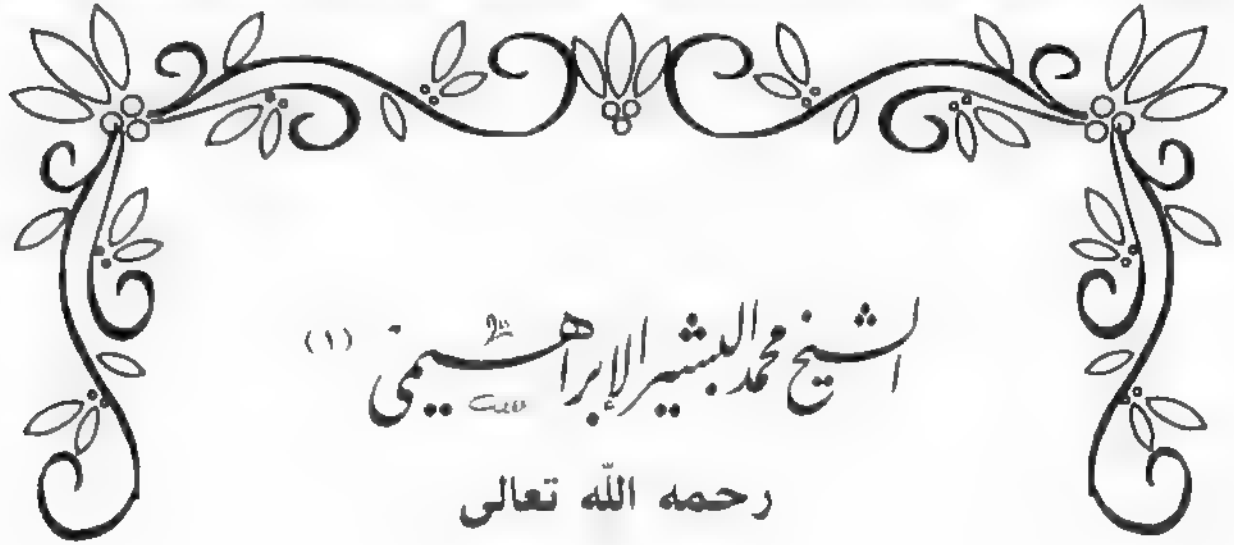 الشيخ محمد البشير الإبراهيمي (١)
رحمه الله تعالى